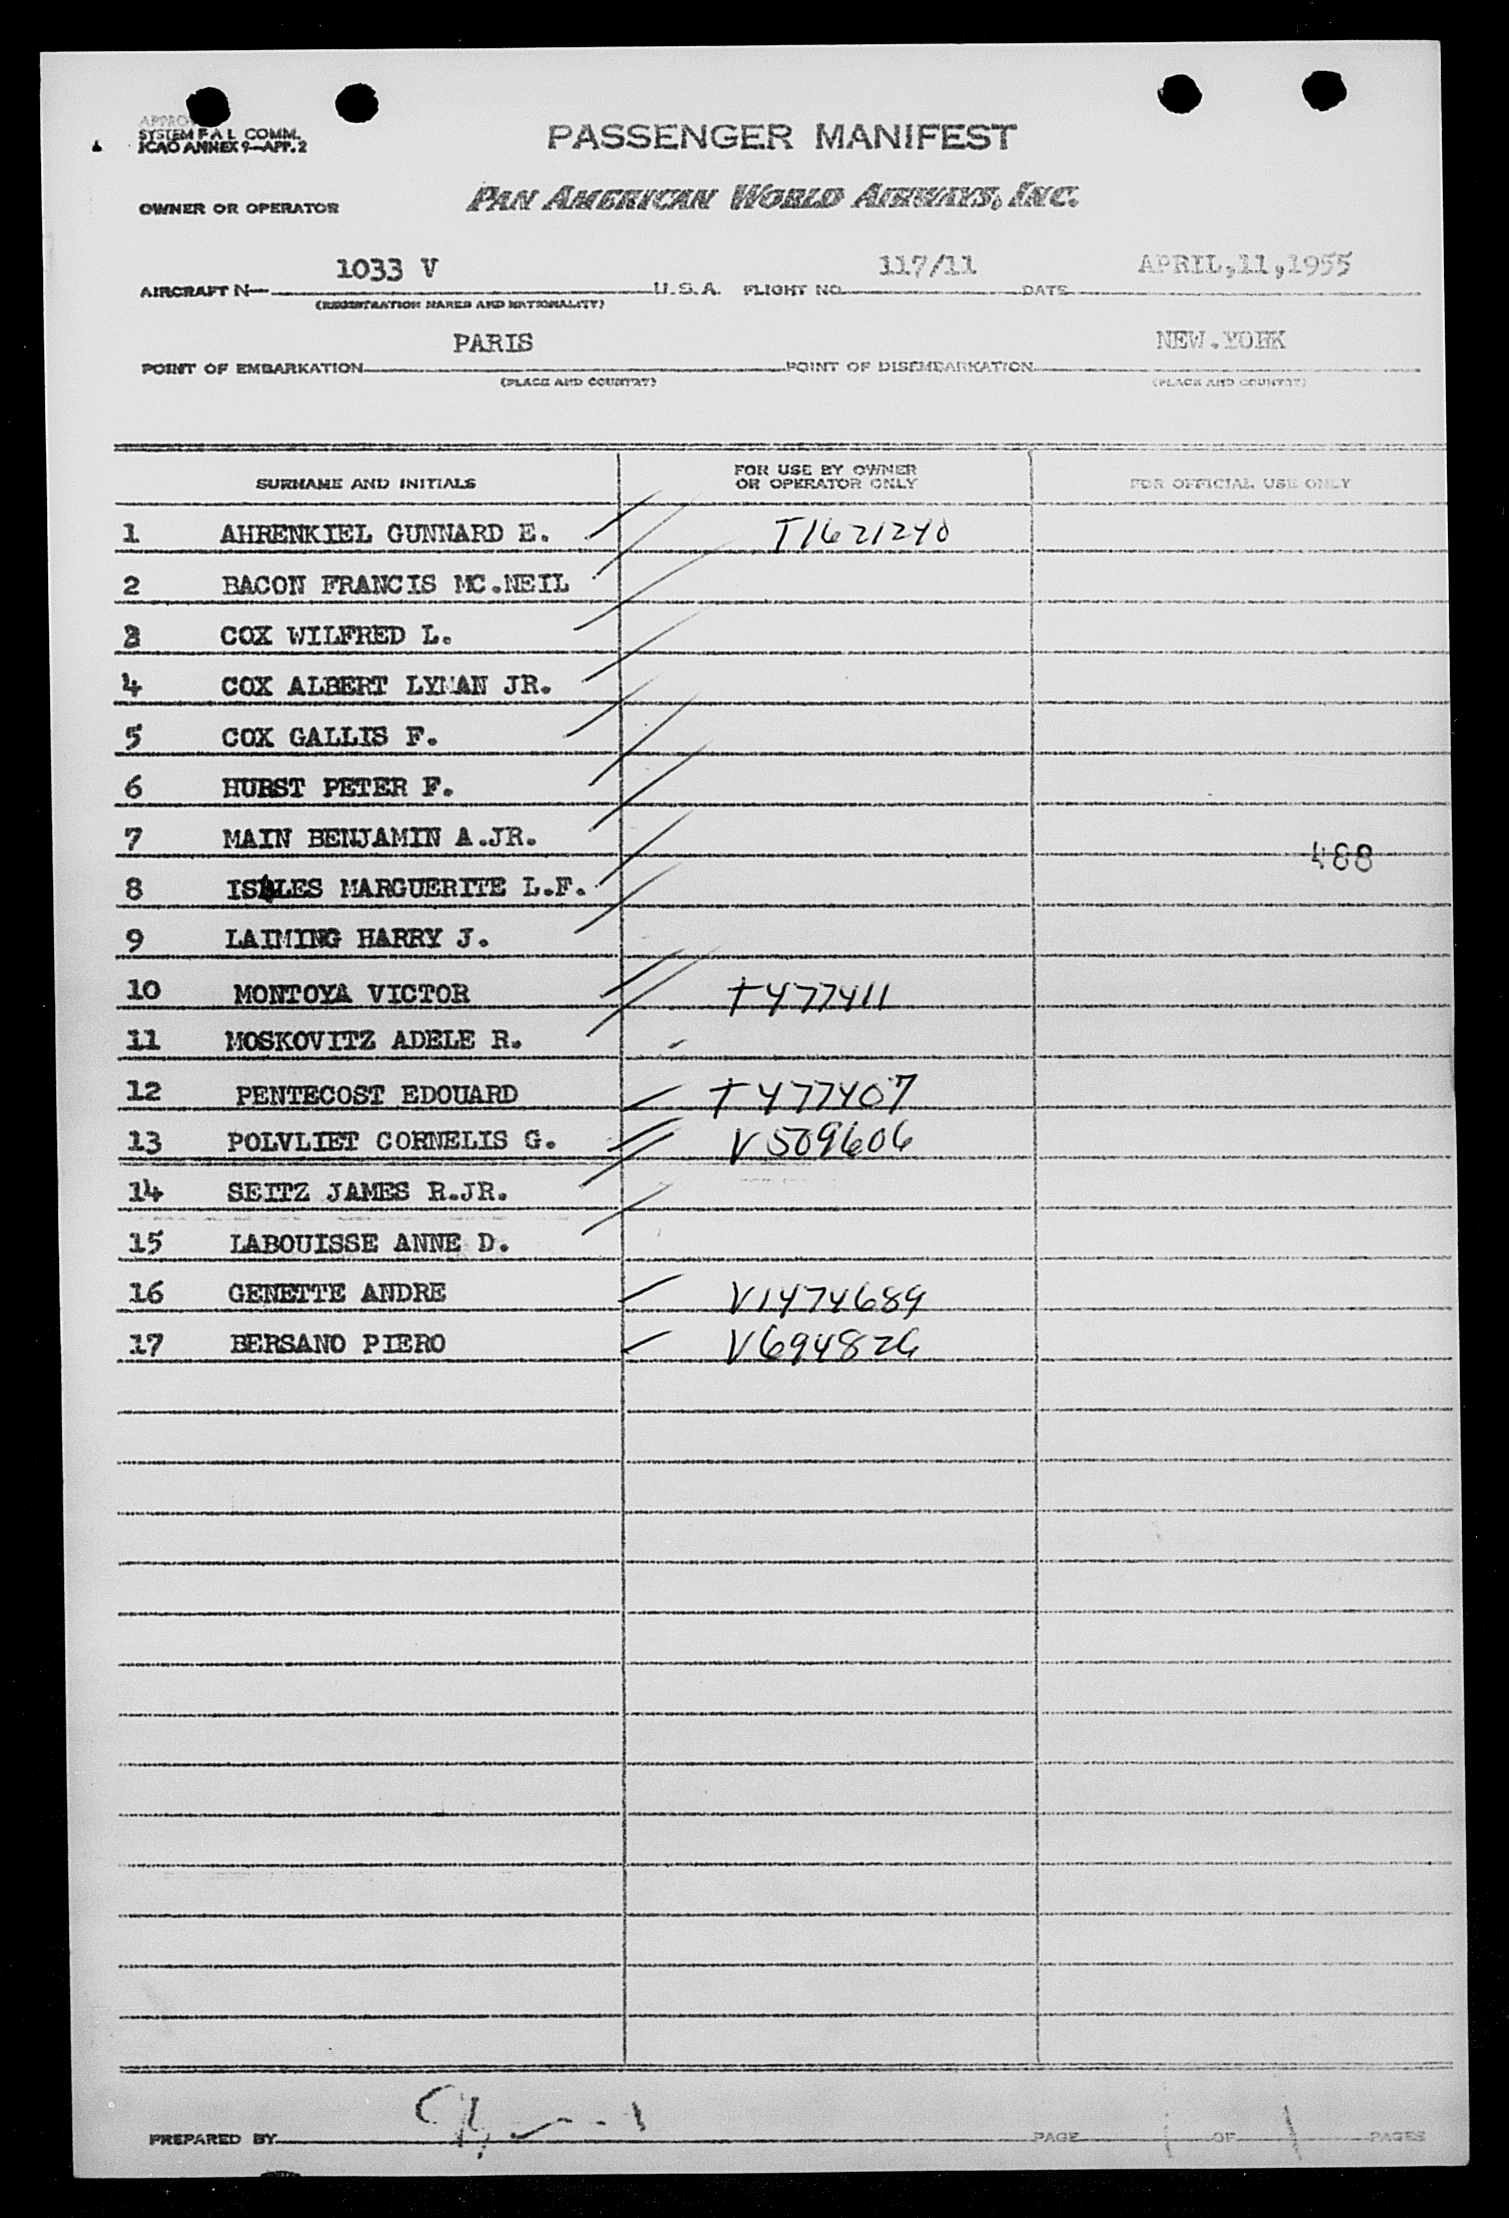 SYSTEM F A L COMM.
ICAO ANNEX 9—APP. 2
PASSENGER MANIFEST
OWNER OR OPERATOR
PAN AMERICAN WORLD AIRWAYS, INC.
AIRCRAFT N— 1033 V U.S.A. FLIGHT NO. 117/11 DATE APRIL,11,1955
(REGISTRATION MARKS AND NATIONALITY)
POINT OF EMBARKATION PARIS POINT OF DISEMBARKATION NEW.YORK
(PLACE AND COUNTRY) (PLACE AND COUNTRY)
SURNAME AND INITIALS FOR USE BY OWNER OR OPERATOR ONLY FOR OFFICIAL USE ONLY
1 AHRENKIEL GUNNARD E. T1621240
2 BACON FRANCIS MC.NEIL
3 COX WILFRED L.
4 COX ALBERT LYMAN JR.
5 COX GALLIS F.
6 HURST PETER F.
7 MAIN BENJAMIN A.JR.
488
8 MARGUERITE L.F.
9 LAIMING HARRY J.
10 MONTOYA VICTOR T477411
11 MOSKOVITZ ADELE R.
12 PENTECOST EDOUARD T477407
13 POLVLIET CORNELIS G. V509606
14 SEITZ JAMES R.JR.
15 LABOUISSE ANNE D.
16 GENETTE ANDRE V1474689
17 BERSANO PIERO V694826
PREPARED BY PAGE 1 OF 1 PAGES